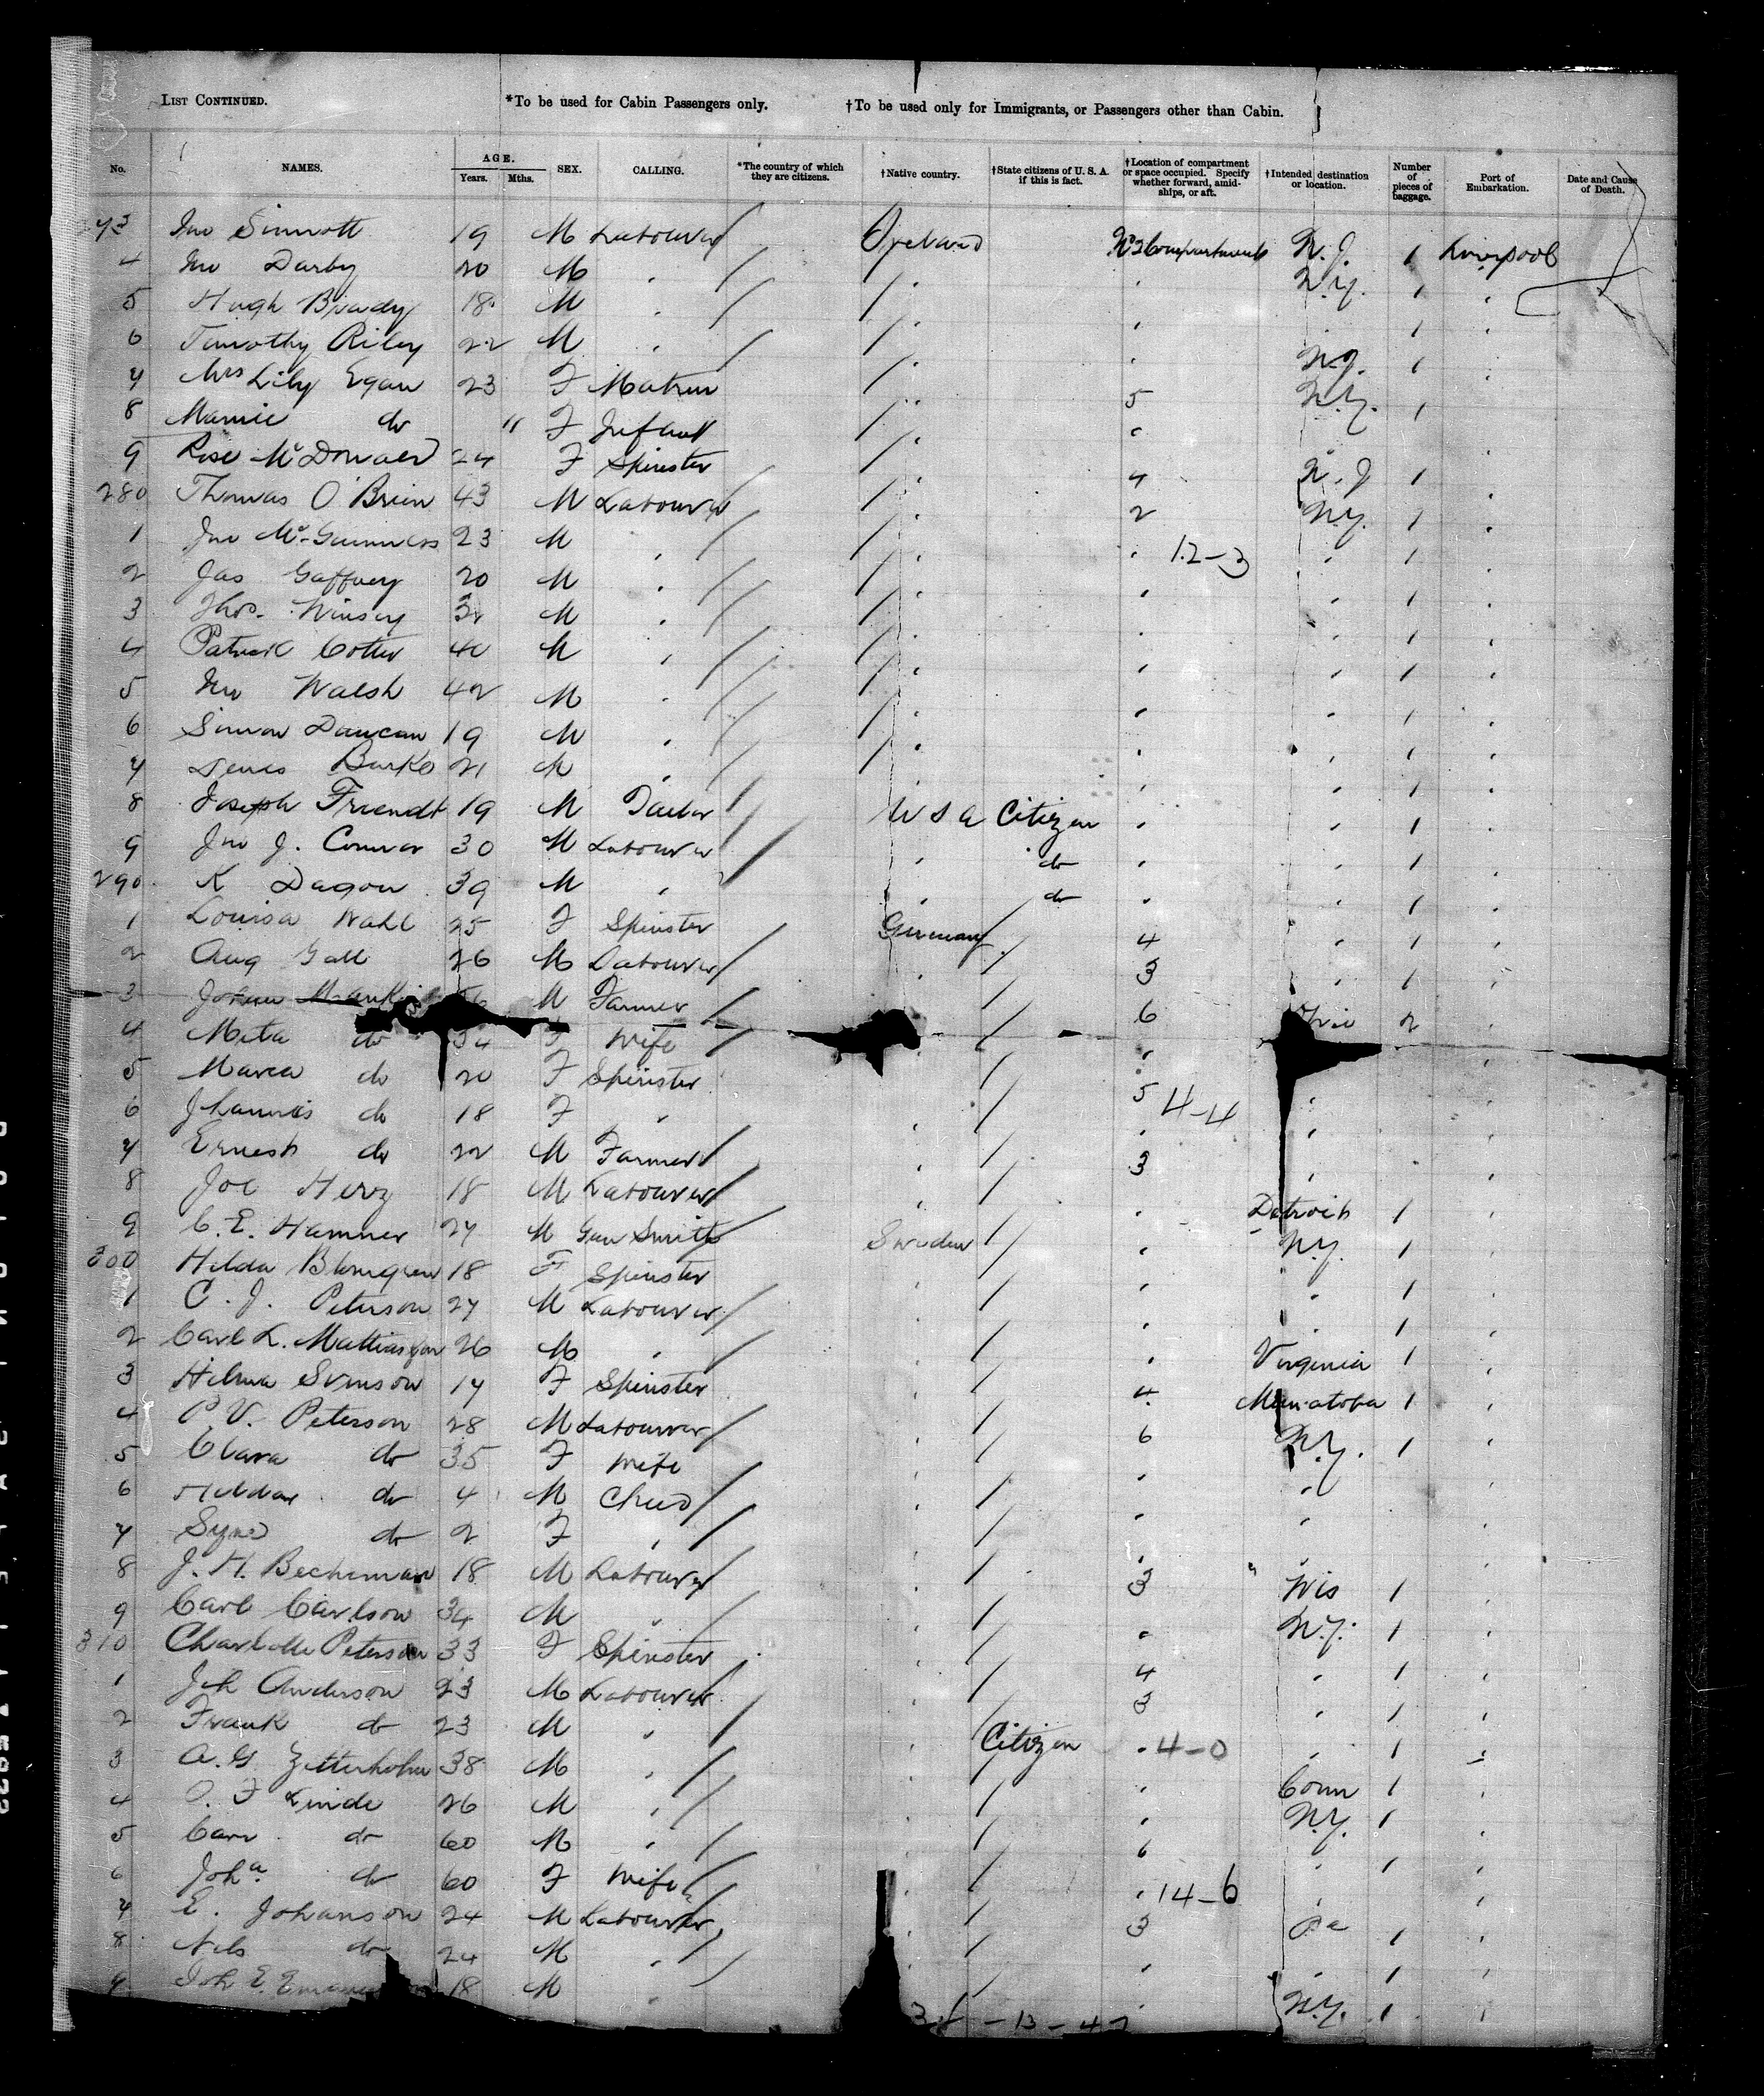 LIST CONTINUED. *To be used for Cabin Passengers only. †To be used only for Immigrants, or Passengers other than Cabin.
No. NAMES. AGE. Years. Mths. SEX. CALLING. *The country of which they are citizens. †Native country. †State citizens of U. S. A. if this is fact. †Location of compartment or space occupied. Specify whether forward, amidships, or aft. †Intended destination or location. Number of pieces of baggage. Port of Embarkation. Date and Cause of Death.
273 Jno Sinnott 19 M Labourer Ireland No 2 Compartment N.J. 1 Liverpool
4 Jno Darby 20 M " " " N.Y. 1 "
5 Hugh Brady 18 M " " " " 1 "
6 Timothy Riley 22 M " " " N.J. 1 "
7 Mrs Lily Egan 23 F Matron " 5 N.Y. 1 "
8 Mamie do " F Infant " "
9 Rose McDonald 24 F Spinster " 4 N.J 1 "
280 Thomas O'Brien 43 M Labourer " 2 N.Y. 1 "
1 Jno McGuinness 23 M " " " 12-3 " 1 "
2 Jas Gaffney 20 M " " " " 1 "
3 Thos. M " " " " 1 "
4 Patrick Cotter 40 M " " " " 1 "
5 Jno Walsh 42 M " " " " 1 "
6 Simon Duncan 19 M " " " " 1 "
7 Denis Burke 21 M " " " " 1 "
8 Joseph 19 M Tailor U S A Citizen " " 1 "
9 Jno J. Connor 30 M Labourer " do " " 1 "
290 K Dagon 39 M " " do " " 1 "
1 Louisa Wahl 25 F Spinster Germany 4 " 1 "
2 Aug Gall 26 M Labourer " 3 " 1 "
3 M Farmer 6 2 "
4 Meta do 54 F Wife " "
5 Maria do 20 F Spinster " 5 4-4 " "
6 do 18 F " " " " "
7 Ernest do 22 M Farmer " 3 " "
8 Joe Herz 18 M Labourer " " Detroit 1 "
9 C. E. Hammer 27 M Gun Smith Sweden " N.Y. 1 "
300 Hilda Blomgren 18 F Spinster " " " 1 "
1 C. J. Peterson 27 M Labourer " " " 1 "
2 Carl L. Mattiasson 26 M " " " Virginia 1 "
3 Hilma Svenson 17 F Spinster " 4 1 "
4 P. V. Peterson 28 M Labourer " 6 N.Y. 1 "
5 Clara do 35 F Wife " " "
6 Hildar do 4 M Child " " " "
7 do 2 F " " " "
8 J. H. Beckman 18 M Labourer " 3 " Wis 1 "
9 Carl Carlson 34 M " " " N.Y. 1 "
310 Charlotte Peterson 33 F Spinster " 4 " 1 "
1 Joh Anderson 23 M Labourer " 3 " 1 "
2 Frank do 23 M " " Citizen " 4-0 " 1 "
3 A. G. Zetterholm 38 M " " " Conn 1 "
4 Linde 26 M " " " N.Y. 1 "
5 Carl do 60 M " " 6 " 1 "
6 Joha do 60 F Wife " " 14-6 " "
7 E. Johanson 24 M Labourer " 3 Pa 1 "
8 Nils do 24 M " " " " 1 "
9 Joh E. 18 M " " N.Y. 1 "
-13-42